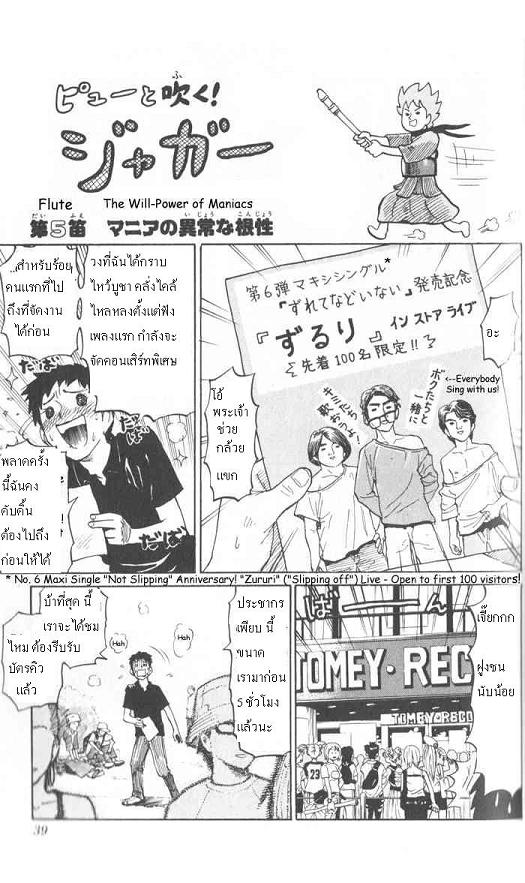 ピューと吹く!
ふ
ジャガー
Flute The Will-Power of Maniacs
だい ふえ いじょう こんじょう
第5笛 マニアの異常な根性
第6弾マキシシングル*
「ずれてなどいない」発売記念
『ずるり』インストアライブ
先着100名限定!!
อะ
<--Everybody
Sing with us!
ボクたちと
一緒に
キミたちも
歌おうよ
โอ้
พระเจ้า
ช่วย
กล้วย
แขก
วงที่ฉันได้กราบ
ไหว้บูชา คลั่งไคล้
ไหลหลงตั้งแต่ฟัง
เพลงแรก กำลังจะ
จัดคอนเสิร์ทพิเศษ
...สำหรับร้อย
คนแรกที่ไป
ถึงที่จัดงาน
ได้ก่อน
だばっ
だばっ
だばっ
พลาดครั้ง
นี้ฉันคง
คับดิ้น
ต้องไปถึง
ก่อนให้ได้
* No. 6 Maxi Single "Not Slipping" Anniversary! "Zururi" ("Slipping off") Live - Open to first 100 visitors!
ばーーん
เจี๊ยกกก
ฝูงชน
นับน้อย
TOMEY·REC
TOMEY·RECO
23
ประชากร
เพียบ นี้
ขนาด
เรามาก่อน
5 ชั่วโมง
แล้วนะ
Hah
Hah
บ้าที่สุด นี้
เราจะได้ชม
ไหม ต้องรีบรับ
บัตรคิว
แล้ว
39